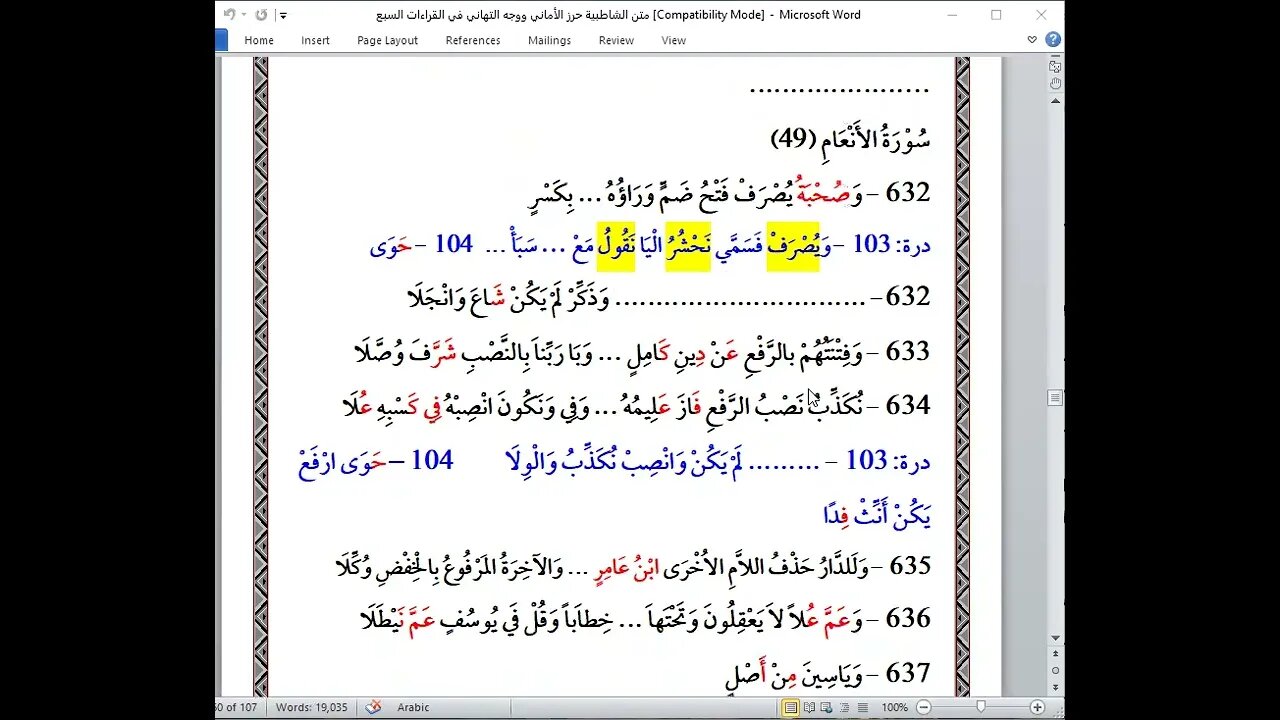 متن الشاطبية حرز الأماني ووجه التهاني في القراءات السبع [Compatibility Mode] - Microsoft Word
Home Insert Page Layout References Mailings Review View
......................
سُوْرَةُ الأَنْعَامِ (49)
632 – وَصُحْبَةُ يُصْرَفْ فَتْحُ ضَمٍّ وَرَاؤُهُ ... بِكَسْرٍ
درة: 103 – وَيُصْرَفْ فَسَمِّي نَحْشُرُ الْيَا نَقُولُ مَعْ ... سَبَأْ ... 104 – حَوَى
632 – .............................. وَذَكِّرْ لَمْ يَكُنْ شَاعَ وَانْجَلَا
633 – وَفِتْنَتُهُمْ بالرَّفْعِ عَنْ دِينِ كَامِلٍ ... وَبَا رَبِّناَ بِالنَّصْبِ شَرَّفَ وُصَّلَا
634 – نُكَذِّبُ نَصْبُ الرَّفْعِ فَازَ عَلِيمُهُ ... وَفِي وَنَكُونَ انْصِبْهُ فِي كَسْبِهِ عُلَا
درة: 103 – ......... لَمْ يَكُنْ وَانْصِبْ نُكَذِّبُ وَالْوِلَا 104 – حَوَى ارْفَعْ
يَكُنْ أَنِّثْ فِدًا
635 – وَلَلدَّارُ حَذْفُ اللاَّمِ الاُخْرَى ابْنُ عَامِرٍ ... وَالآخِرَةُ المَرْفُوعُ بِالْخِفْضِ وُكِّلَا
636 – وَعَمَّ عُلاً لاَ يَعْقِلُونَ وَتَحْتَهاَ ... خِطاَباً وَقُلْ فَي يُوسُفٍ عَمَّ نَيْطَلَا
637 – وَيَاسِينَ مِنْ أَصْلٍ
0 of 107 Words: 19,035 Arabic 100%